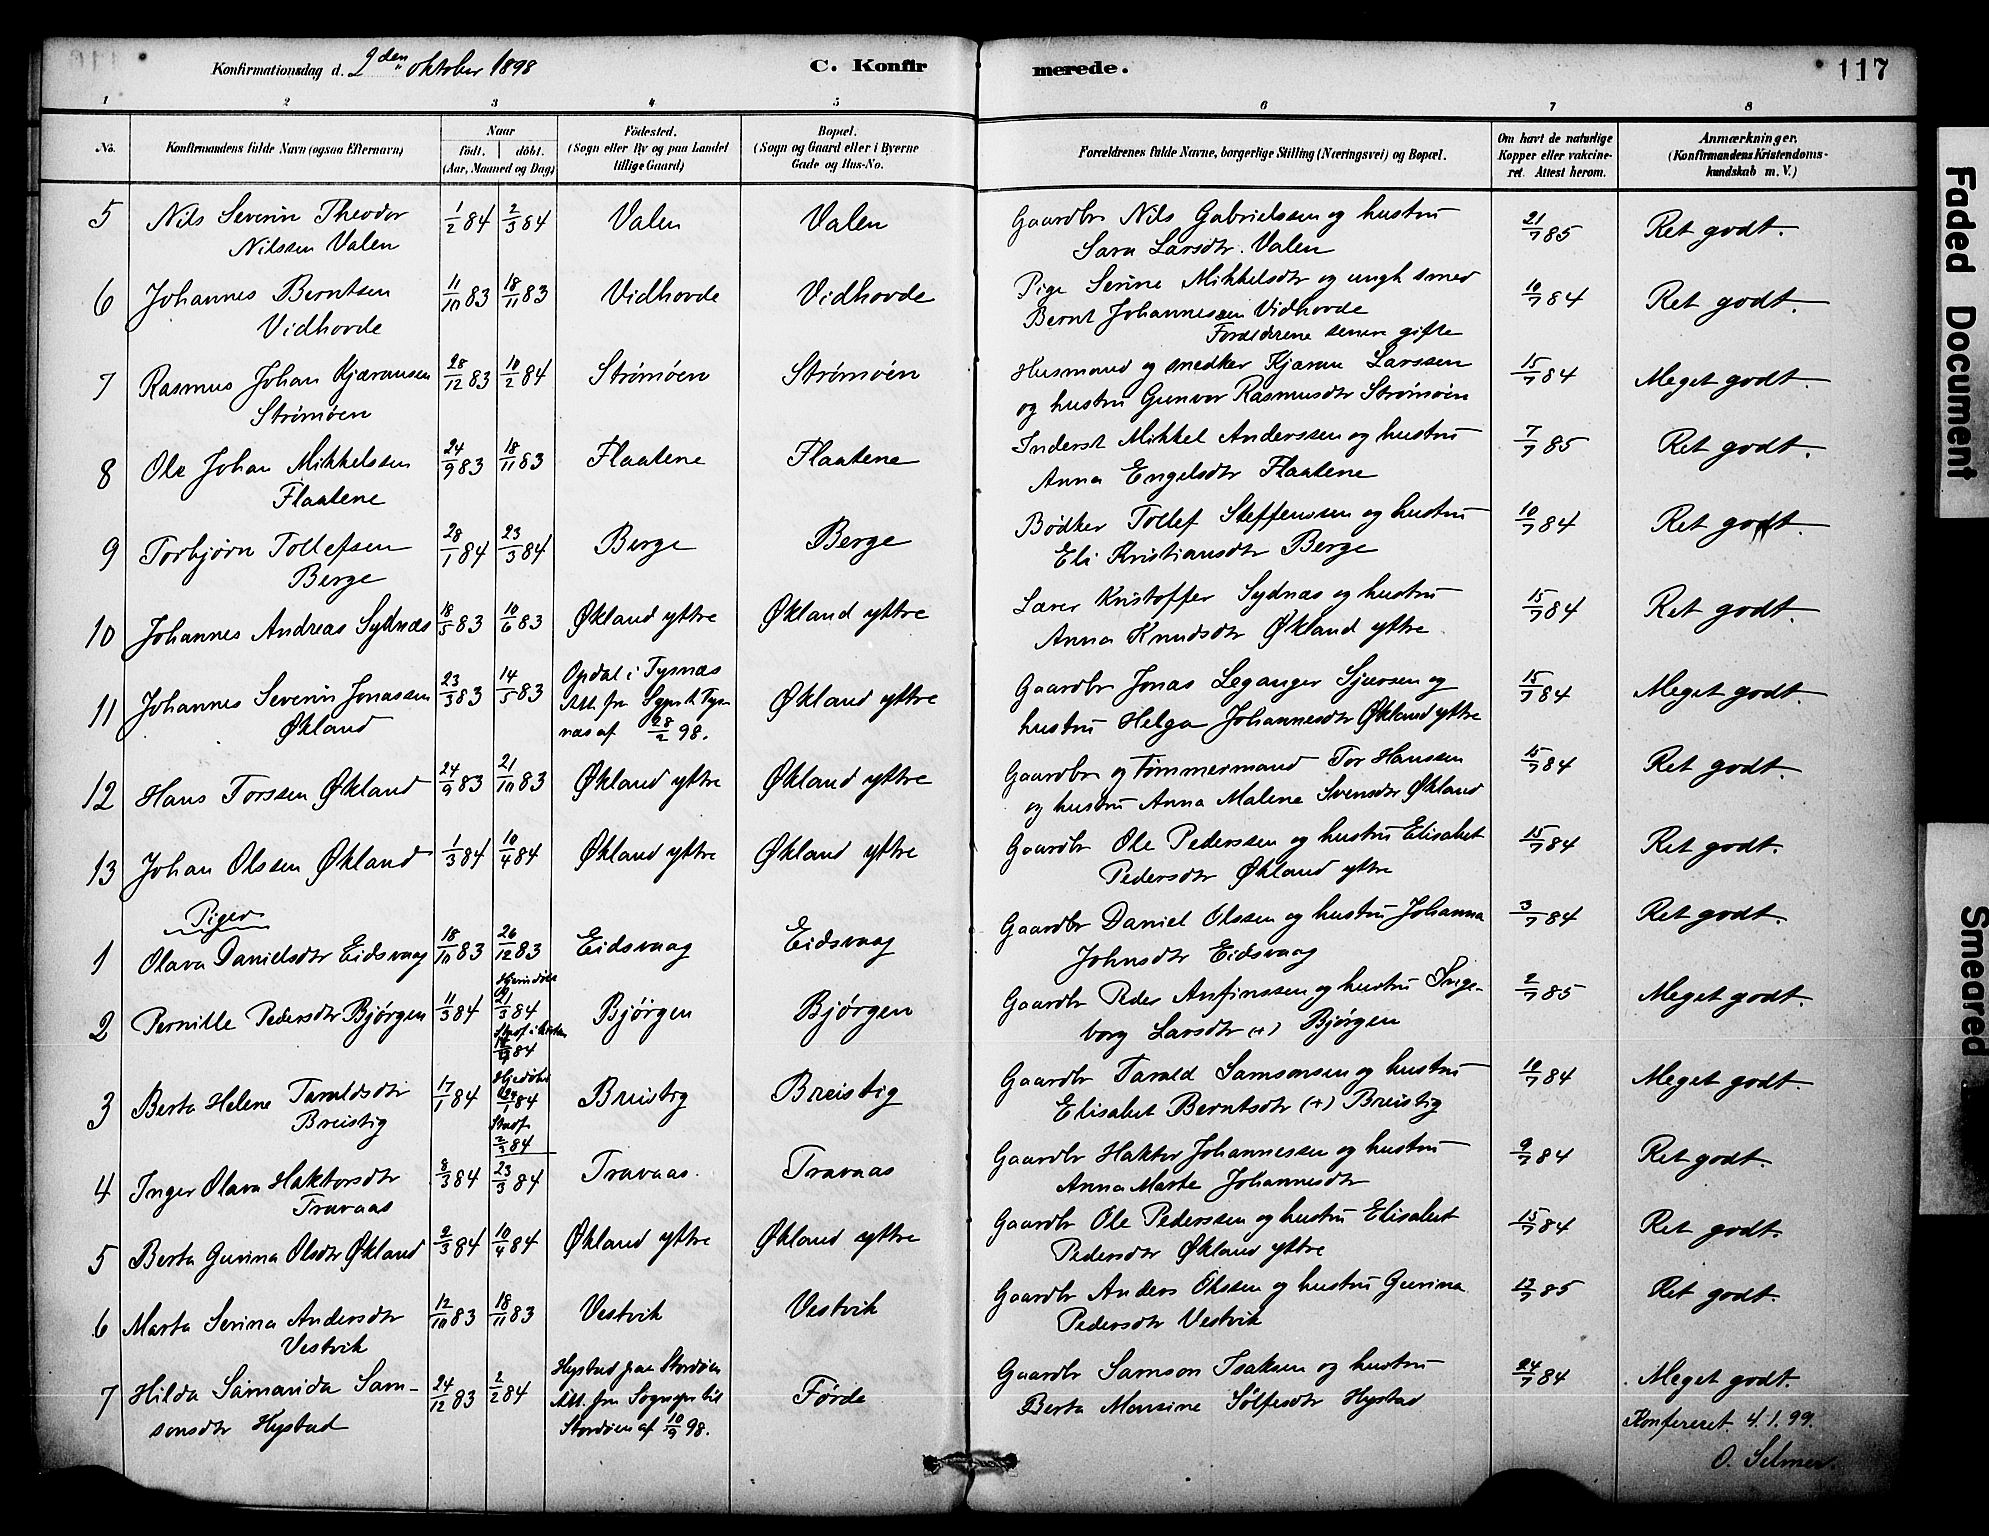 Konfirmationsdag d. 9den oktober 1898 C. Konfirmerede. 117
1 2 3 4 5 6 7 8
No. Konfirmandens fulde Navn (ogsaa Efternavn) Naar födt. döbt. (Aar, Maaned og Dag) Födested. (Sogn eller By og paa Landet tillige Gaard) Bopæl. (Sogn og Gaard eller i Byerne Gade og Hus-No. Forældrenes fulde Navne, borgerlige Stilling (Næringsvei) og Bopæl. Om havt de naturlige Kopper eller vakcineret. Attest herom. Anmærkninger. (Konfirmandens Kristendomskundskab m. V.)
5 Nils Severin Theodor 1/2 84 2/3 84 Valen Valen Gaardbr Nils Gabrielssen og hustru 21/7 85 Ret godt.
Nilssen Valen Sara Larsdtr. Valen
6 Johannes Berntsen 11/10 83 18/11 83 Vidhovde Vidhovde Pige Serine Mikkelsdtr og ungk smed 10/7 84 Ret godt.
Vidhovde Bernt Johannessen Vidhovde
Forældrene senere gifte
7 Rasmus Johan Kjæransen 28/12 83 10/2 84 Strømøen Strømøen Husmand og snedker Kjæran Larssen 15/7 84 Meget godt.
Strømøen og hustru Gunvor Rasmusdtr Strømøen
8 Ole Johan Mikkelssen 24/9 83 18/11 83 Flaatene Flaatene Inderst Mikkel Anderssen og hustru 7/7 85 Ret godt.
Flaatene Anna Engelsdtr Flaatene
9 Torbjørn Tollefsen 28/1 84 23/3 84 Berge Berge Bødker Tollef Steffensen og hustru 10/7 84 Ret godt.
Berge Eli Kristiansdtr Berge
10 Johannes Andreas Sydnæs 18/5 83 10/6 83 Økland yttre Økland yttre Lærer Kristoffer Sydnæs og hustru 15/7 84 Ret godt.
Anna Knudsdtr Økland yttre
11 Johannes Severin Jonassen 23/3 83 14/5 83 Opdal i Tysnæs Økland yttre Gaardbr Jonas Leganger Sjursen og 15/7 84 Meget godt.
Økland Att. fra Sgpr. t. Tysnæs af 28/2 98. hustru Helga Johannesdtr Økland yttre
12 Hans Torssen Økland 24/9 83 21/10 83 Økland yttre Økland yttre Gaardbr og tømmermand Tor Hanssen 15/7 84 Ret godt.
og hustru Anna Malene Svensdtr Økland
13 Johan Olssen Økland 1/3 84 10/4 84 Økland yttre Økland yttre Gaardbr Ole Pederssen og hustru Elisabet 15/7 84 Ret godt.
Pedersdtr Økland yttre
Piger
1 Olava Danielsdtr Eidsvaag 18/10 83 26/12 83 Eidsvaag Eidsvaag Gaardbr Daniel Olssen og hustru Johanna 3/7 84 Ret godt.
Johnsdtr Eidsvaag
2 Pernille Pedersdtr Bjørgen 11/3 84 Hjemdøbt 21/3 84 Bjørgen Bjørgen Gaardbr Peder Anfinssen og hustru Inge- 2/7 85 Meget godt.
Stadf. i kirken 84 borg Larsdtr (+) Bjørgen
3 Berta Helene Taraldsdtr 17/1 84 84 Breistig Breistig Gaardbr Tarald Samsonsen og hustru 10/7 84 Meget godt.
Breistig Stadf. 2/3 84 Elisabet Berntsdtr (+) Breistig
4 Inger Olava Haktorsdtr 8/3 84 23/3 84 Travaas. Travaas Gaardbr Haktor Johannessen og hustru 9/7 84 Ret godt.
Travaas Anna Marte Johannesdtr
5 Berta Gurina Olsdtr Økland 2/3 84 10/4 84 Økland yttre Økland yttre Gaardbr Ole Pederssen og hustru Elisabet 15/7 84 Ret godt.
Pedersdtr Økland yttre
6 Marta Serina Andersdtr 12/10 83 18/11 83 Vestvik Vestvik Gaardbr Anders Olssen og hustru Gurina 85 Ret godt.
Vestvik Pedersdtr Vestvik
7 Hilda Samanda Sam- 24/12 83 2/2 84 Hystad paa Stordøen Førde Gaardbr Samson Isaksen og hustru 24/7 84 Meget godt.
sonsdtr Hystad Att. fra Sognepr. til Stordøen af 10/9 98. Berta Monsine Sølfesdtr Hystad
Konfereret. 4.1.99.
O. Selmer.
Faded Document
Smeared